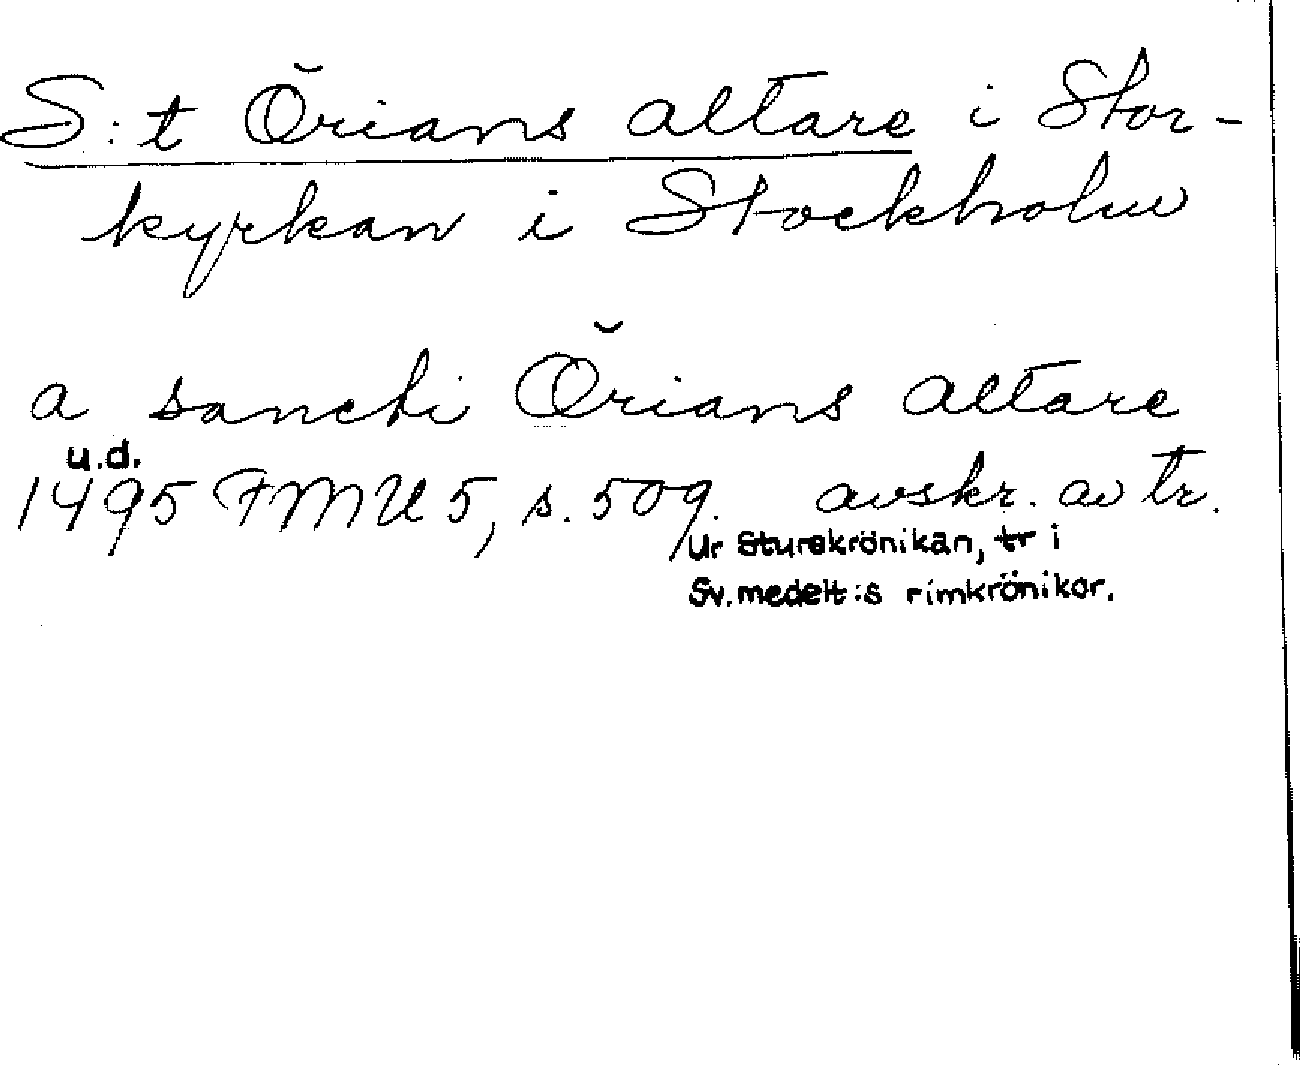 S:t Örians altare i Stor-
kyrkan i Stockholm
a sancti Örians altare
u.d.
1495 FMU 5, s. 509. avskr. av tr.
Ur Sturekrönikan, tr i
Sv. medelt:s rimkrönikor.